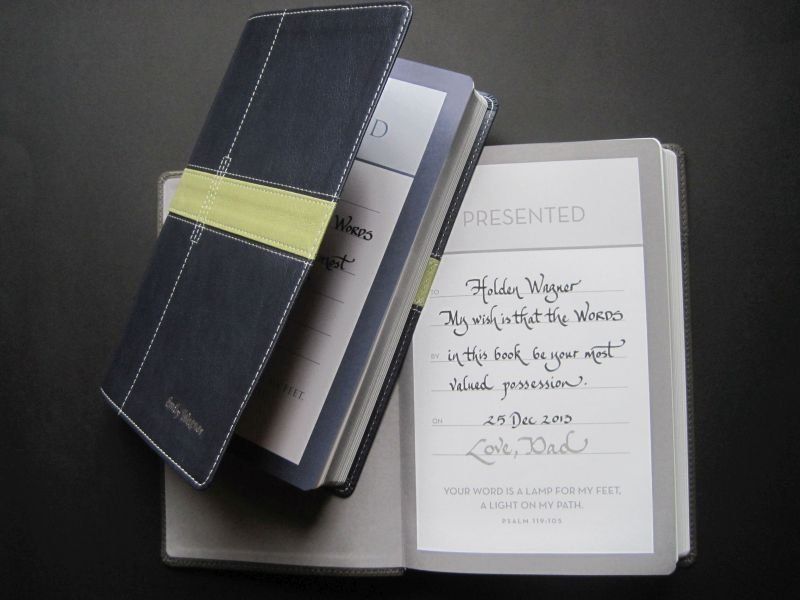 D
WORDS
most
FEET,
Emily Wagner
PRESENTED
TO Holden Wagner
My wish is that the WORDS
BY in this book be your most
valued possession.
ON 25 Dec 2013
Love, Dad
YOUR WORD IS A LAMP FOR MY FEET,
A LIGHT ON MY PATH.
PSALM 119:105